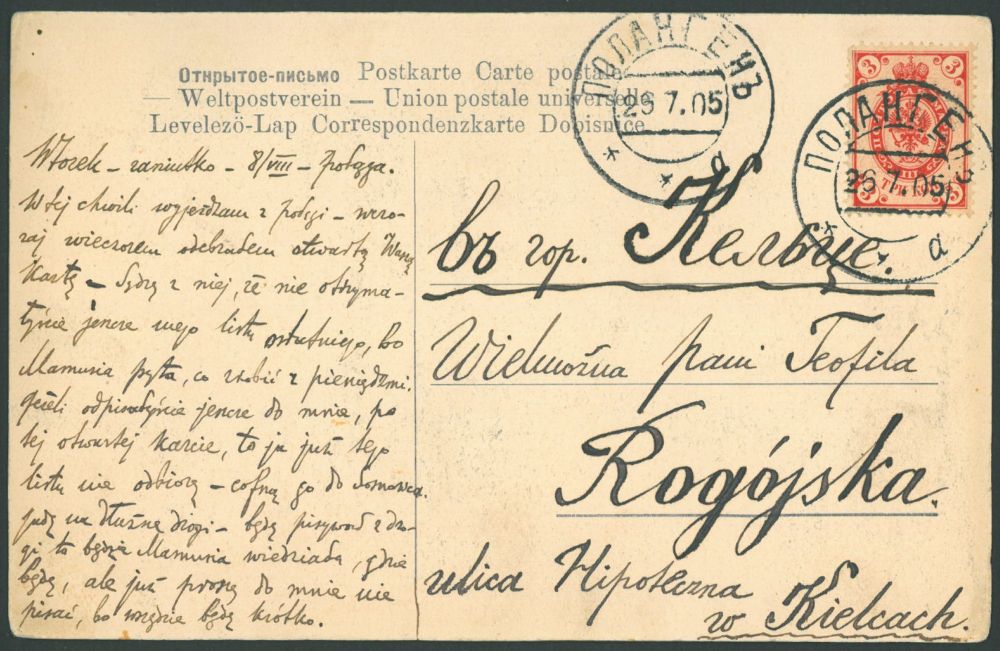 Открытое-письмо Postkarte Carte postale
Weltpostverein — Union postale universelle
Levelezö-Lap Correspondenzkarte Dopisnice
ПОЛАНГЕНЪ
26 7.05
а
ПОЛАНГЕНЪ
26 7.05
а
3 3
3 3
Wtorek – raniutko – 8/VIII – Połąga.
W tej chwili wyjeżdżam z Połągi – wczo-
raj wieczorem odebrałem otwartą Waszą
Kartę – Sądzę z niej, że nie otrzyma-
łyście jeszcze mego listu ostatniego, bo
Mamusia pyta, co zrobić z pieniędzmi.
Jeżeli odpisałyście jeszcze do mnie, po
tej otwartej karcie, to ja już tego
listu nie odbiorę – cofną go do Sosnowca.
Jadę na dłuższe drogi – będę pisywał z dro-
gi to będzie Mamusia wiedziała, gdzie
będę, ale już proszę do mnie nie
pisać, bo wszędzie będę krótko.
въ гор. Кельце.
Wielmożna pani Teofila
Rogójska.
ulica Hipoteczna
w Kielcach.